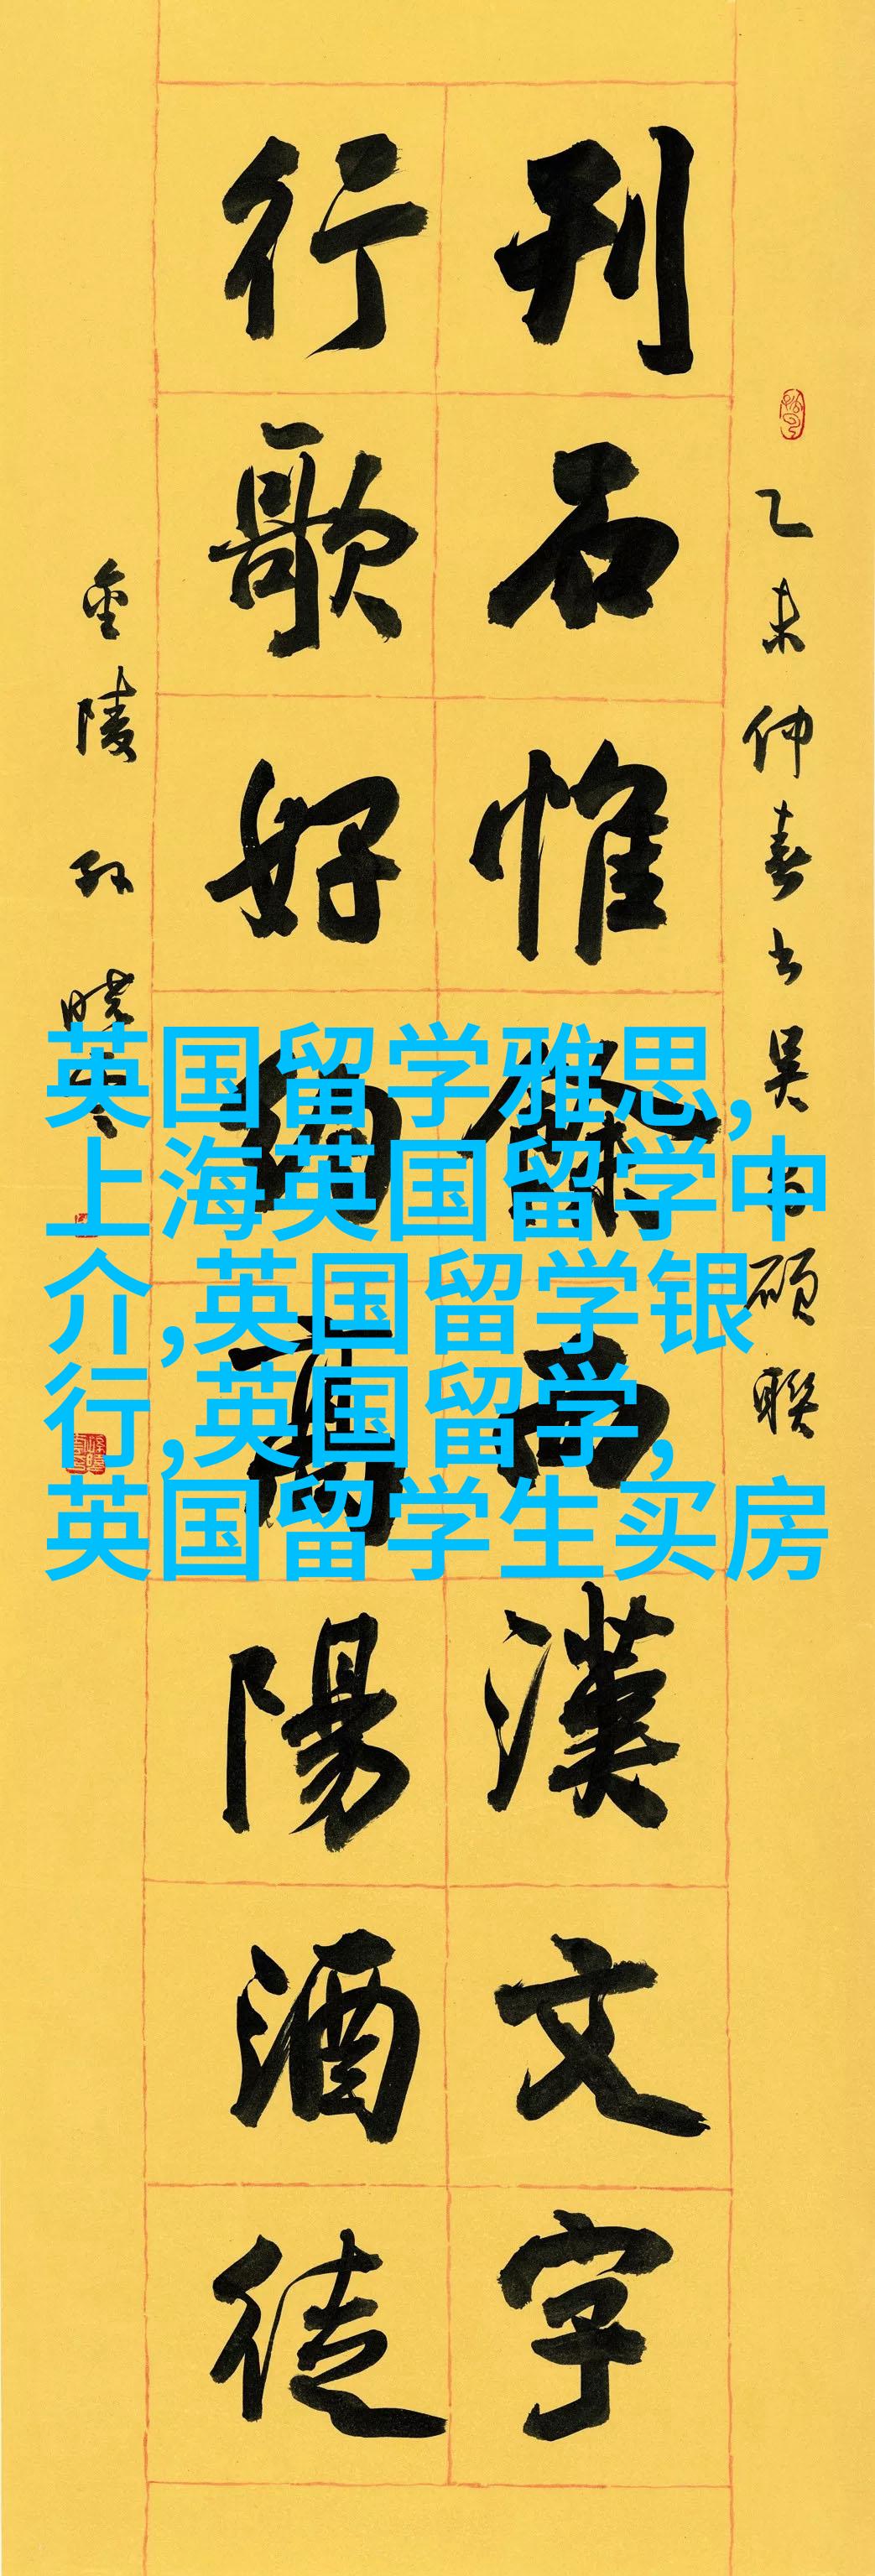 乙未仲春书吴昌硕联
刊石惟西漢文字
行歌好高陽酒徒
金陵孙晓云
英国留学雅思,
上海英国留学中
介,英国留学银
行,英国留学,
英国留学生买房